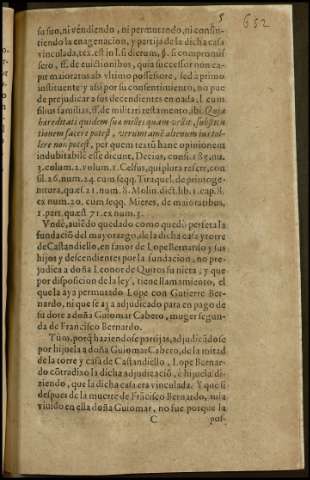 5
652
sa suo, ni vendiendo, ni permutando, ni consin-
tiendo la enagenacion, y partija de la dicha casa
vinculada, tex. est in l. si dictum, §. si compromis-
sero, ff. de euictionibus, quia successor non ca-
pit maioratus ab vltimo possessore, sed a primo
instituente y assi por su consentimiento, no pue
de prejudicar a sus decendientes en nada, l. cum
filius familias, ff. de militari testamento, ibi. Quia
hæreditati quidem sua miles quam vellet, substitu
tionem facere potest, verum tamē alienum ius tol-
lere non potest, per quem textū hanc opinionem
indubitabilē esse dicunt, Decius, consi. 285. nu.
3. colum. 2. volum. 1. Celsus, qui plura refert, con
sil. 26. num. 24. cum seqq. Tiraquel. de primoge-
nitura, quæst. 21. num. 8. Molin. dict. lib. 1. cap. 8.
ex num. 20. cum seqq. Mieres, de maioratibus,
1. part. quæst 71. ex num. 3.
Vnde, auiēdo quedado como quedò perfeta la
fundaciō del mayorazgo, de la dicha casa y torre
de Castandiello, en fauor de Lope Bernardo y sus
hijos y descendientes por la fundacion, no pre-
judica a doña Leonor de Quiros su nieta, y que
por disposicion de la ley, tiene llamamiento, el
que la aya permutado Lope con Gutierre Ber-
nardo, ni que se aya adjudicado para en pago de
su dote a doña Guiomar Cabero, muger segun-
da de Francisco Bernardo.
Tum, porq̄ haziendose partijas, adjudicādose
por hijuela a doña Guiomar Cabero, de la mitad
de la torre y casa de Castandiello, Lope Bernar-
do cōtradixo la dicha adjudicaciō, è hijuela di-
ziendo, que la dicha casa era vinculada. Y que si
despues de la muerte de Frācisco Bernardo, auia
viuido en ella doña Guiomar, no fue porque la
C
pos-